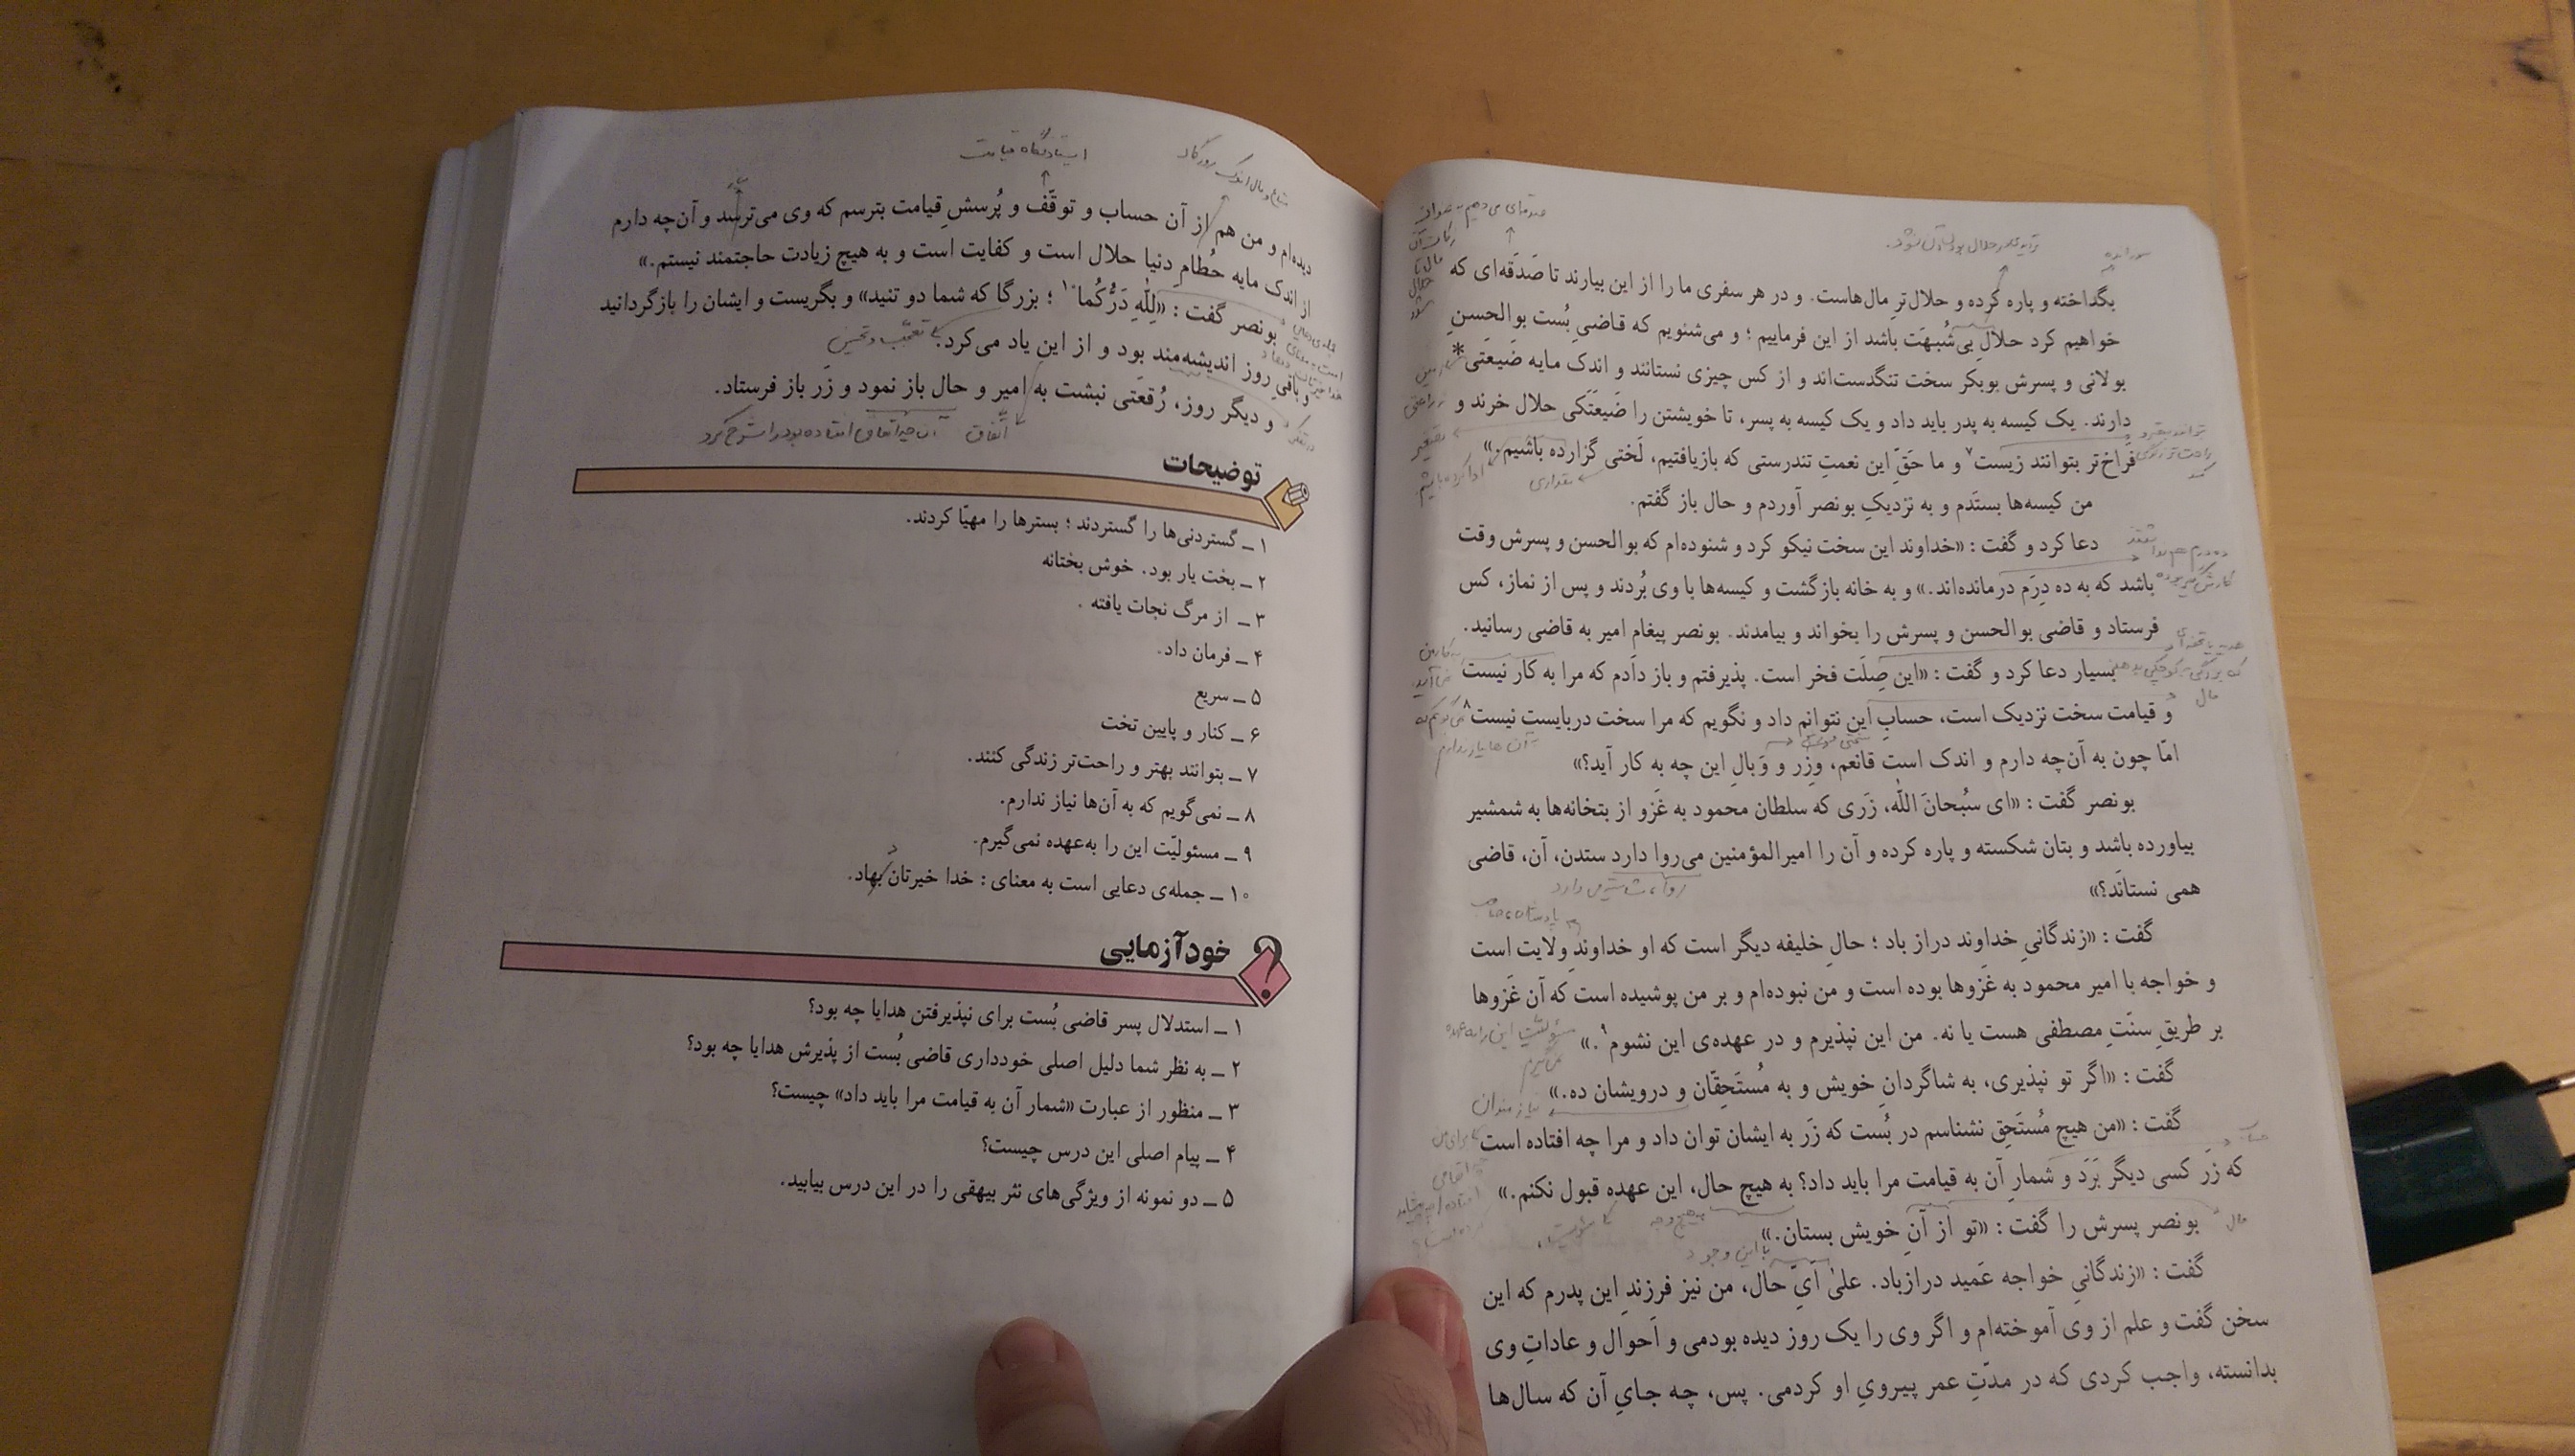 بگداخته و پاره کرده و حلال‌ترِ مال‌هاست. و در هر سفری ما را از این بیارند تا صَدَقه‌ای که
خواهیم کرد حلالِ بی‌شُبهَت باشد از این فرماییم ؛ و می‌شنویم که قاضیِ بُست بوالحسنِ
بولانی و پسرش بوبکر سخت تنگدست‌اند و از کس چیزی نستانند و اندک مایه ضَیعَتی*
دارند. یک کیسه به پدر باید داد و یک کیسه به پسر، تا خویشتن را ضَیعَتَکی حلال خرند و
فَراخ‌تر بتوانند زیست۷ و ما حَقِّ این نعمتِ تندرستی که بازیافتیم، لَختی گزارده باشیم.»
من کیسه‌ها بستَدم و به نزدیکِ بونصر آوردم و حال باز گفتم.
دعا کرد و گفت : «خداوند این سخت نیکو کرد و شنوده‌ام که بوالحسن و پسرش وقت
باشد که به ده دِرَم درمانده‌اند.» و به خانه بازگشت و کیسه‌ها با وی بُردند و پس از نماز، کس
فرستاد و قاضی بوالحسن و پسرش را بخواند و بیامدند. بونصر پیغامِ امیر به قاضی رسانید.
بسیار دعا کرد و گفت : «این صِلَت فخر است. پذیرفتم و باز دادم که مرا به کار نیست
و قیامت سخت نزدیک است، حسابِ این نتوانم داد و نگویم که مرا سخت دربایست نیست۸
امّا چون به آن‌چه دارم و اندک است قانعم، وِزر و وَبالِ این چه به کار آید؟»
بونصر گفت : «ای سُبحانَ اللّه، زَری که سلطان محمود به غَزو از بتخانه‌ها به شمشیر
بیاورده باشد و بتان شکسته و پاره کرده و آن را امیرالمؤمنین می‌روا دارد ستدن، آن، قاضی
همی نستاند؟»
گفت : «زندگانیِ خداوند دراز باد ؛ حالِ خلیفه دیگر است که او خداوندِ ولایت است
و خواجه با امیر محمود به غَزوها بوده است و من نبوده‌ام و بر من پوشیده است که آن غَزوها
بر طریقِ سنّتِ مصطفی هست یا نه. من این نپذیرم و در عهده‌ی این نشوم۹.»
گفت : «اگر تو نپذیری، به شاگردانِ خویش و به مُستَحِقّان و درویشان ده.»
گفت : «من هیچ مُستَحِق نشناسم در بُست که زَر به ایشان توان داد و مرا چه افتاده است
که زَر کسی دیگر بَرَد و شمارِ آن به قیامت مرا باید داد؟ به هیچ حال، این عهده قبول نکنم.»
بونصر پسرش را گفت : «تو از آنِ خویش بستان.»
گفت : «زندگانیِ خواجه عَمید درازباد. علیٰ اَیِّ حال، من نیز فرزندِ این پدرم که این
سخن گفت و علم از وی آموخته‌ام و اگر وی را یک روز دیده بودمی و اَحوال و عاداتِ وی
بدانسته، واجب کردی که در مدّتِ عمر پیرویِ او کردمی. پس، چه جایِ آن که سال‌ها
ایستادنگاه قیامت
دیده‌ام و من هم از آن حساب و توقّف و پُرسشِ قیامت بترسم که وی می‌ترسد و آن‌چه دارم
از اندک مایه حُطامِ دنیا حلال است و کفایت است و به هیچ زیادت حاجتمند نیستم.»
بونصر گفت : «لِلّٰهِ دَرُّکُما۱۰ ؛ بزرگا که شما دو تنید» و بگریست و ایشان را بازگردانید
و باقیِ روز اندیشه‌مند بود و از این یاد می‌کرد.
تعجّب و تحسین
و دیگر روز، رُقعَتی نبشت به امیر و حال باز نمود و زَر باز فرستاد.
اتّفاق
توضیحات
۱ ــ گستردنی‌ها را گستردند ؛ بسترها را مهیّا کردند.
۲ ــ بخت یار بود. خوش بختانه
۳ ــ از مرگ نجات یافته .
۴ ــ فرمان داد.
۵ ــ سریع
۶ ــ کنار و پایین تخت
۷ ــ بتوانند بهتر و راحت‌تر زندگی کنند.
۸ ــ نمی‌گویم که به آن‌ها نیاز ندارم.
۹ ــ مسئولیّت این را به‌عهده نمی‌گیرم.
۱۰ ــ جمله‌ی دعایی است به معنای : خدا خیرتان بهاد.
خودآزمایی
۱ ــ استدلال پسر قاضی بُست برای نپذیرفتن هدایا چه بود؟
۲ ــ به نظر شما دلیل اصلی خودداری قاضی بُست از پذیرش هدایا چه بود؟
۳ ــ منظور از عبارت «شمار آن به قیامت مرا باید داد» چیست؟
۴ ــ پیام اصلی این درس چیست؟
۵ ــ دو نمونه از ویژگی‌های نثر بیهقی را در این درس بیابید.